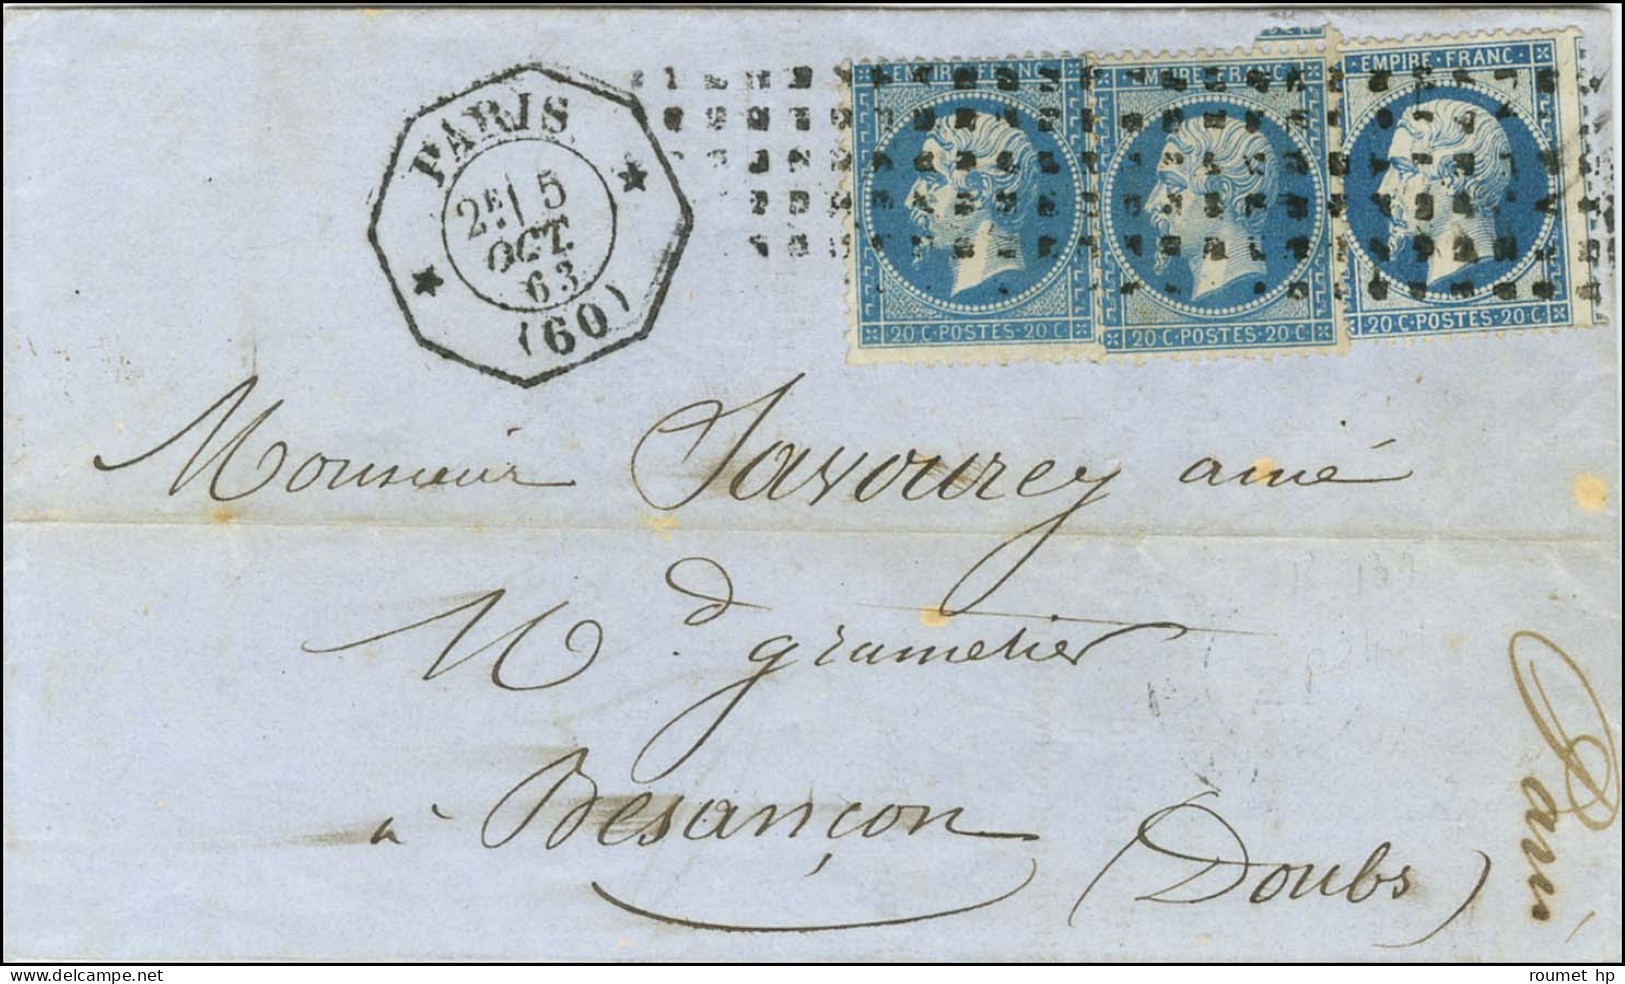 PARIS
2E/ 5
OCT.
63
(60)
EMPIRE·FRANC
20 C·POSTES·20 C
EMPIRE·FRANC
20 C·POSTES·20 C
EMPIRE·FRANC
20 C·POSTES·20 C
Monsieur Savourey ainé
Md. grametier
à Besançon (Doubs)
Paris
roumet hp